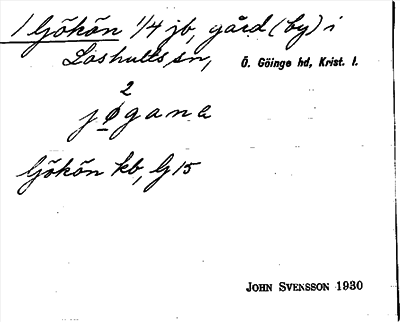 1 Gökön 1/4 jb, gård (by) i
Loshults sn, Ö. Göinge hd, Krist. l.
2
jøgana
Gökön kb, G 15
JOHN SVENSSON 1930